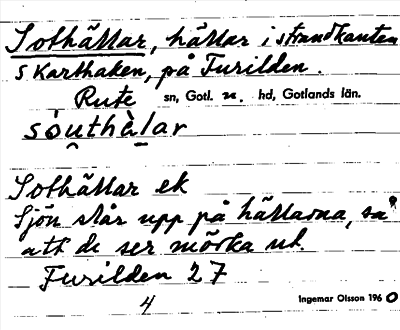 Sothällar, hällar i strandkanten
S Karthaken, på Furilden.
Rute sn, Gotl. n. hd, Gotlands län.
sòu̯thàlar
Sothällar ek
Sjön slår upp på hällarna, så
att de ser mörka ut.
Furilden 27
4 Ingemar Olsson 1960